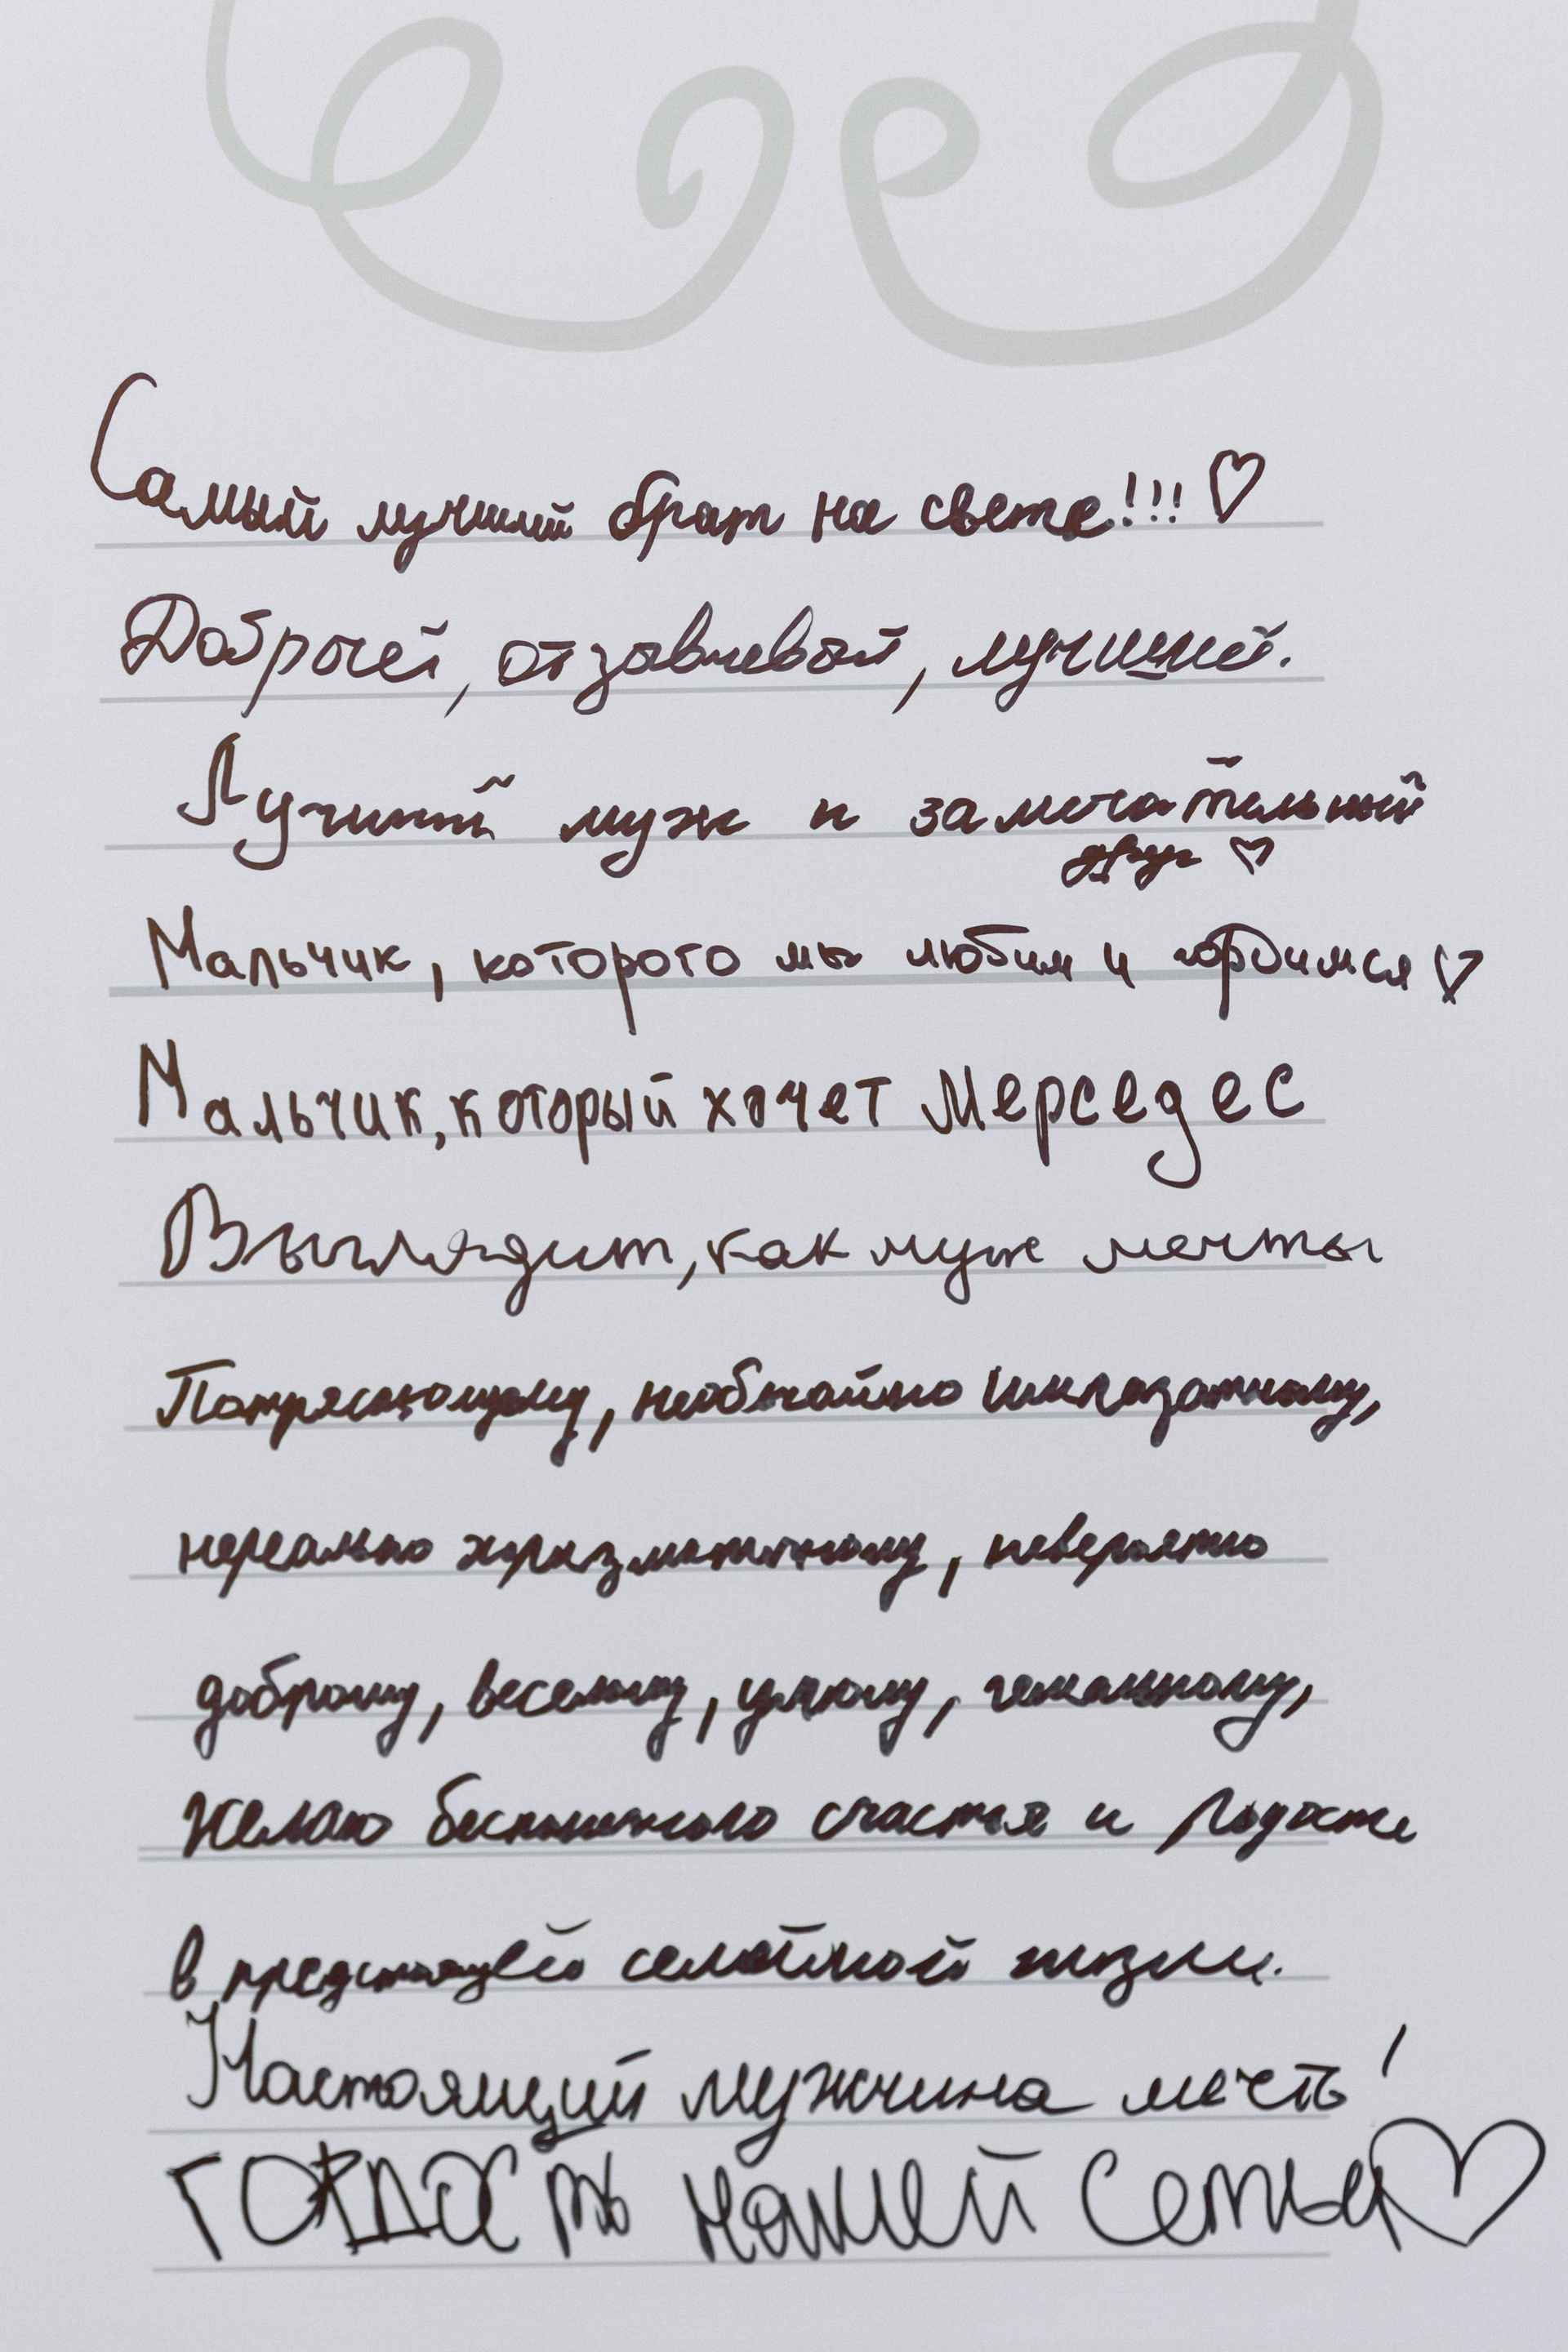 Самый лучший брат на свете!!! ♡
Добрый, отзывчивый, лучший.
Лучший муж и замечательный
друг ♡
Мальчик, которого мы любим и гордимся ♡
Мальчик, который хочет Мерседес
Выглядит, как муж мечты
Потрясающему, необычайно элегазатному,
нереально харизматичному, невероятно
доброму, веселому, умному, желанному,
желаю бесконечного счастья и радости
в предстоящей семейной жизни.
Настоящий мужчина мечты!
ГОРДОСТЬ нашей семьи ♡